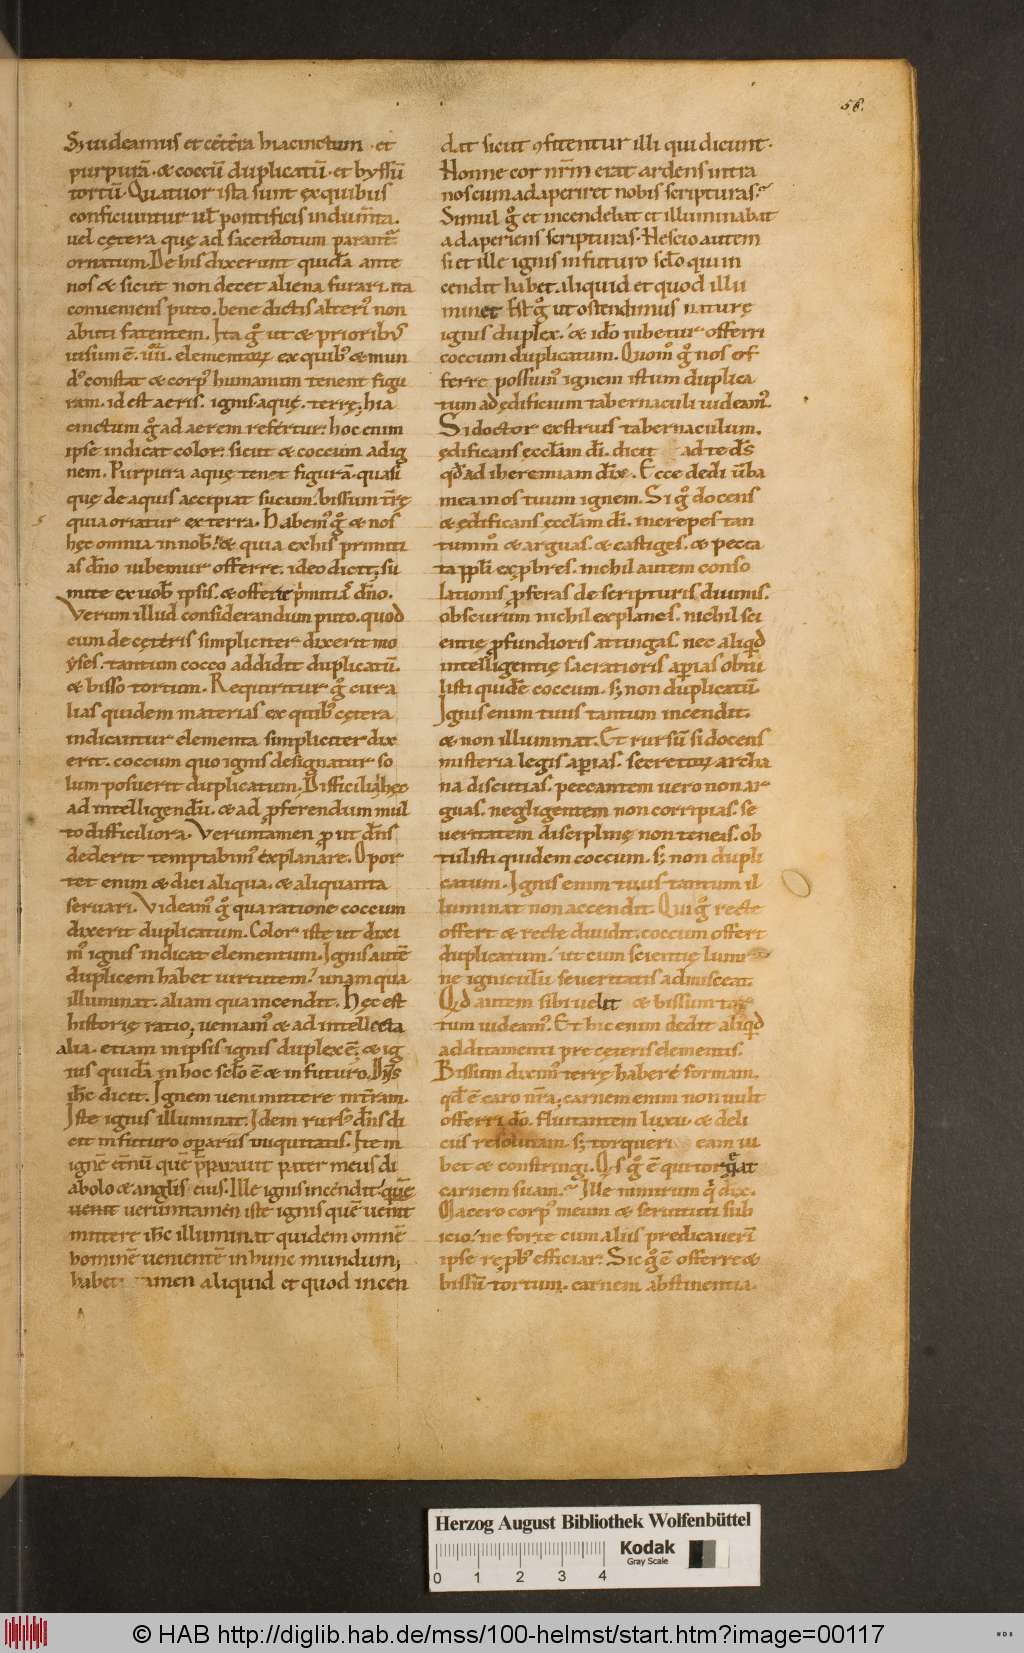 58.
S; uideamus et cętera hiacinctum · et
purpurā · & coccū duplicatū · et byssū
tortū · Quatuor ista sunt ex quibus
conficiuntur ul pontificis indum̄ta.
uel cętera quę ad sacerdotum parant᷑
ornatum. De his dixerunt quidā ante
nos & sicut non decet aliena furari. ita
conueniens puto. bene dictis alteri᷒ non
abuti fatentem. Ita g̊ ut & prioribꝰ
uisum ē. iiii. elementoꝝ ex quibꝰ & mun
dꝰ constat & corpꝰ humanum tenent figu
ram. id est aeris. ignis. aquę. terrę. hia
cinctum g̊ ad aerem refertur. hoc enim
ipse indicat color. sicut & coccum ad ig
nem. Purpura aquę tenet figurā. quasi
quę de aquis accipiat sucum. bissum t̄rę
quia oriatur ex terra. Habemꝰ g̊ & nos
hęc omnia in nobꝭ. & quia ex his primiti
as dn̄o iubemur offerre. ideo dicit. su
mite ex uob̄ ipsis. & offerte p̄mitiā dn̄o.
Verum illud considerandum puto. quod
cum de cęteris simpliciter dixerit mo
yses. tantum cocco addidit duplicatū.
& bisso tortum. Requiritur g̊ cur a
lias quidem materias ex quibꝰ cętera
indicantur elementa simpliciter dix
erit. coccum quo ignis designatur so
lum posuerit duplicatum. Difficilia hęc
ad intelligendū. & ad ꝓferendum mul
to difficiliora. Veruntamen ꝓut dn̄s
dederit temptabimꝰ explanare. Opor
tet enim & dici aliqua. & aliquanta
seruari. Videamꝰ g̊ qua ratione coccum
dixerit duplicatum. Color iste ut dixi
mꝰ ignis indicat elementum. Ignis autē
duplicem habet uirtutem. unam qua
illuminat. aliam qua incendit. Hęc est
historię ratio, ueniamꝰ & ad intellecta
alia. etiam in ipsis ignis duplex ē. & ig
nis quidā in hoc sclo ē & in futuro. Dn̄s
ihc dicit. Ignem ueni mittere in t̄ram.
Iste ignis illuminat. Idem rursꝰ dn̄s di
cit in futuro oꝑariis iniquitatis. Ite in
ignē et̄nū quē p̄parauit pater meus di
abolo & anglis eius. Ille ignis incendit quē
uenit ueruntamen iste ignis quē uenit
mittere ihc illuminat quidem omnē
hominē uenientē in hunc mundum,
habet tamen aliquid et quod incen
dat sicut ꝯfitentur illi qui dicunt.
Nonne cor nr̄m erat ardens intra
nos cum adaperiret nobis scripturas.
Simul g̊ et incendebat et illuminabat
adaperiens scripturas. Nescio autem
si et ille ignis in futuro sclo qui in
cendit habet. aliquid et quod illu
minet Est g̊ ut ostendimus naturę
ignis duplex. & ido iubetur offerri
coccum duplicatum. Quom̊ g̊ nos of
ferre possumꝰ ignem istum duplica
tum ad ędificium tabernaculi uideamꝰ.
Si doctor exstruis tabernaculum.
ędificans ęccl̄am di. dicit ad te dn̄s
qd ad iheremiam dix̄. Ecce dedi ūba
mea in os tuum ignem. Si g̊ docens
& ędificans ęccl̄am di. increpes tan
tummͦ & arguas. & castiges. & pecca
ta ppli exꝓbres. nichil autem conso
lationis ꝓferas de scripturis diuinis.
obscurum nichil explanes. nichil sci
entię ꝓfundioris attingas. nec aliqd
intelligentię sacratioris aꝑias obtu
listi quidē coccum. s; non duplicatū.
Ignis enim tuus tantum incendit.
& non illuminat. Et rursū si docens
misteria legis aꝑias. secretoꝝ archa
na discutias. peccantem uero non ar
guas. negligentem non corripias. se
ueritatem disciplinę non teneas. ob
tulisti quidem coccum. s; non dupli
catum. Ignis enim tuus tantum il
luminat non accendit. Qui g̊ recte
offert & recte diuidit. coccum offert
duplicatum. ut cum scientię lumi
ne igniculū seueritatis admisceat.
Qd autem sibi uelit & bissum tor
tum uideamꝰ. Et hic enim dedit aliqd
additamenti pre cęteris elementis.
Bissum diximꝰ terrę habere formam.
qd ē caro nr̄a. carnem enim non uult
offerri do. fluitantem luxu. & deli
ciis resolutam. s; torqueri eam iu
bet & constringi. Qs g̊ ē qui torqueat
carnem suam. Ille nimirum q̇ dix̄.
Macero corpꝰ meum & seruituti sub
icio. ne forte cum aliis predicauerī
ipse rępbꝰ efficiar. Sic g̊ ē offerre &
bissū tortum. carnem abstinentia.
Herzog August Bibliothek Wolfenbüttel
0 1 2 3 4
Kodak
Gray Scale
© HAB http://diglib.hab.de/mss/100-helmst/start.htm?image=00117